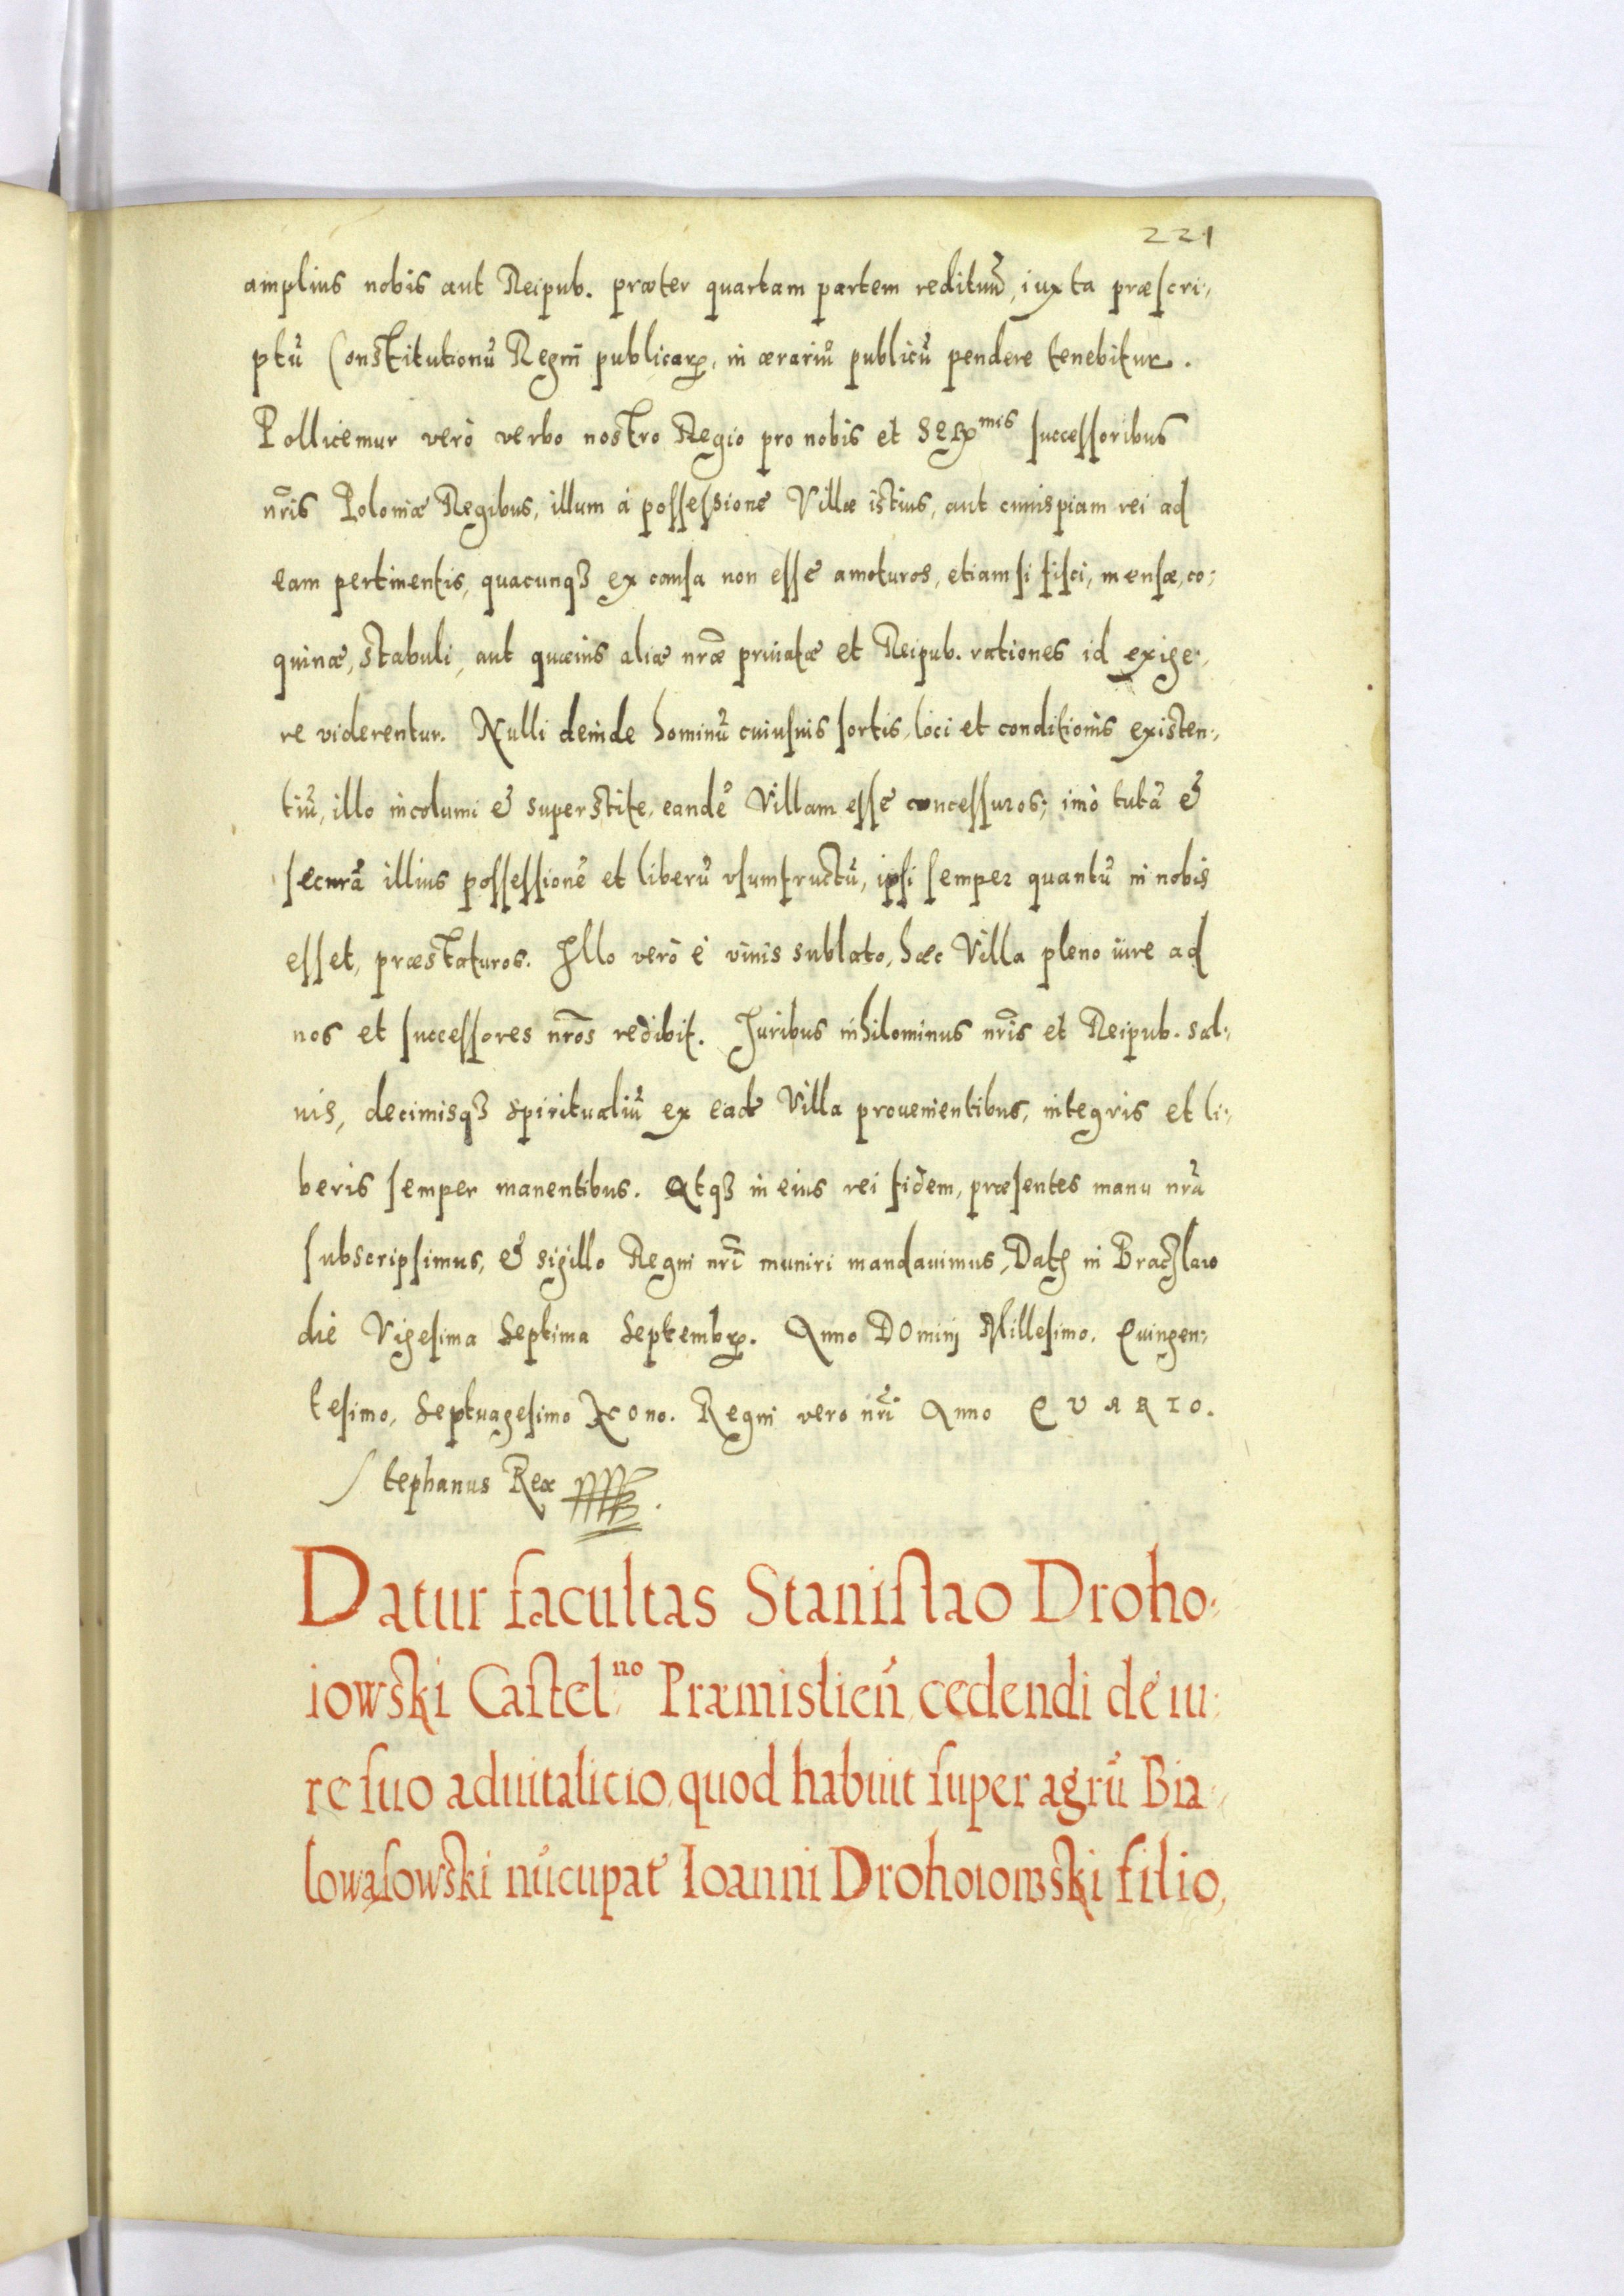 221
amplius nobis aut Reipub. præter quartam partem redituũ, iuxta præscri-
ptũ Constitutionũ Regni publicarꝝ, in ærariũ publicũ pendere tenebitur.
Pollicemur verò verbo nostro Regio pro nobis et Serꝝmis successoribus
nr̃is Poloniæ Regibus, illum á possessione Villæ istius, aut cuiuspiam rei ad
eam pertinentis, quacunqꝫ ex causa non esse amoturos, etiam si fisci, mensæ, co-
quinæ, stabuli, aut quæuis aliæ nr̃æ priuatæ et Reipub. rationes id exige-
re viderentur. Nulli deinde hominũ cuiusuis sortis, loci et conditionis existen-
tiũ, illo incolumi & superstite, eandẽ Villam esse concessuros; imò tutã &
securã illius possessionẽ et liberũ vsumfructũ, ipsi semper quantũ in nobis
esset, præstaturos. Illo verò é viuis sublato, hæc Villa pleno iure ad
nos et successores nr̃os redibit. Juribus nihilominus nr̃is et Reipub. sal-
uis, decimisqꝫ spiritualiũ ex eadẽ Villa prouenientibus, integris et li-
beris semper manentibus. Atqꝫ in eius rei fidem, præsentes manu nr̃a
subscripsimus, & sigillo Regni nr̃i muniri mandauimus, Datꝫ in Braczlaw
die Vigesima Septima Septembrꝫ. Anno Dominj Millesimo. Quingen-
tesimo, Septuagesimo Nono. Regni vero nr̃i Anno QVARTO.
Stephanus Rex
Datur facultas Stanislao Droho-
iowski Castel.no Præmislien̄, cedendi de iu-
re suo aduitalicio, quod habuit super agrũ Bia-
lowąsowski nũcupat̃ Ioanni Drohoiowski filio,